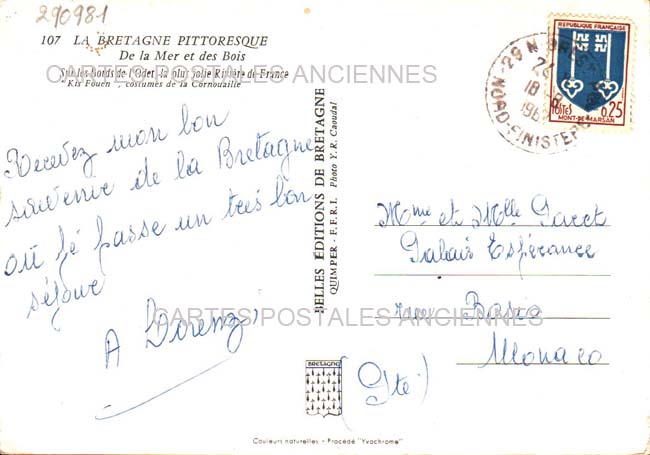 290981
107 LA BRETAGNE PITTORESQUE
De la Mer et des Bois
Sur les bords de l'Odet, la plus jolie Rivière de France
"Kis Fouen", costumes de la Cornouaille
CARTES POSTALES ANCIENNES
Recevez mon bon
souvenir de la Bretagne
où j'é passe un très bon
séjour
A Lorenzi
BELLES ÉDITIONS DE BRETAGNE
QUIMPER - E.F.R.I. Photo Y. R. Caoudal
BRETAGNE
REPUBLIQUE FRANÇAISE
POSTES 0,25
MONT-DE-MARSAN
29 N BREST
18-8
NORD-FINISTERE
Mme et Mlle Garet
Palais Espérance
rue Bosio
Monaco
(Pté)
CARTES POSTALES ANCIENNES
Couleurs naturelles - Procédé "Yvochrome"